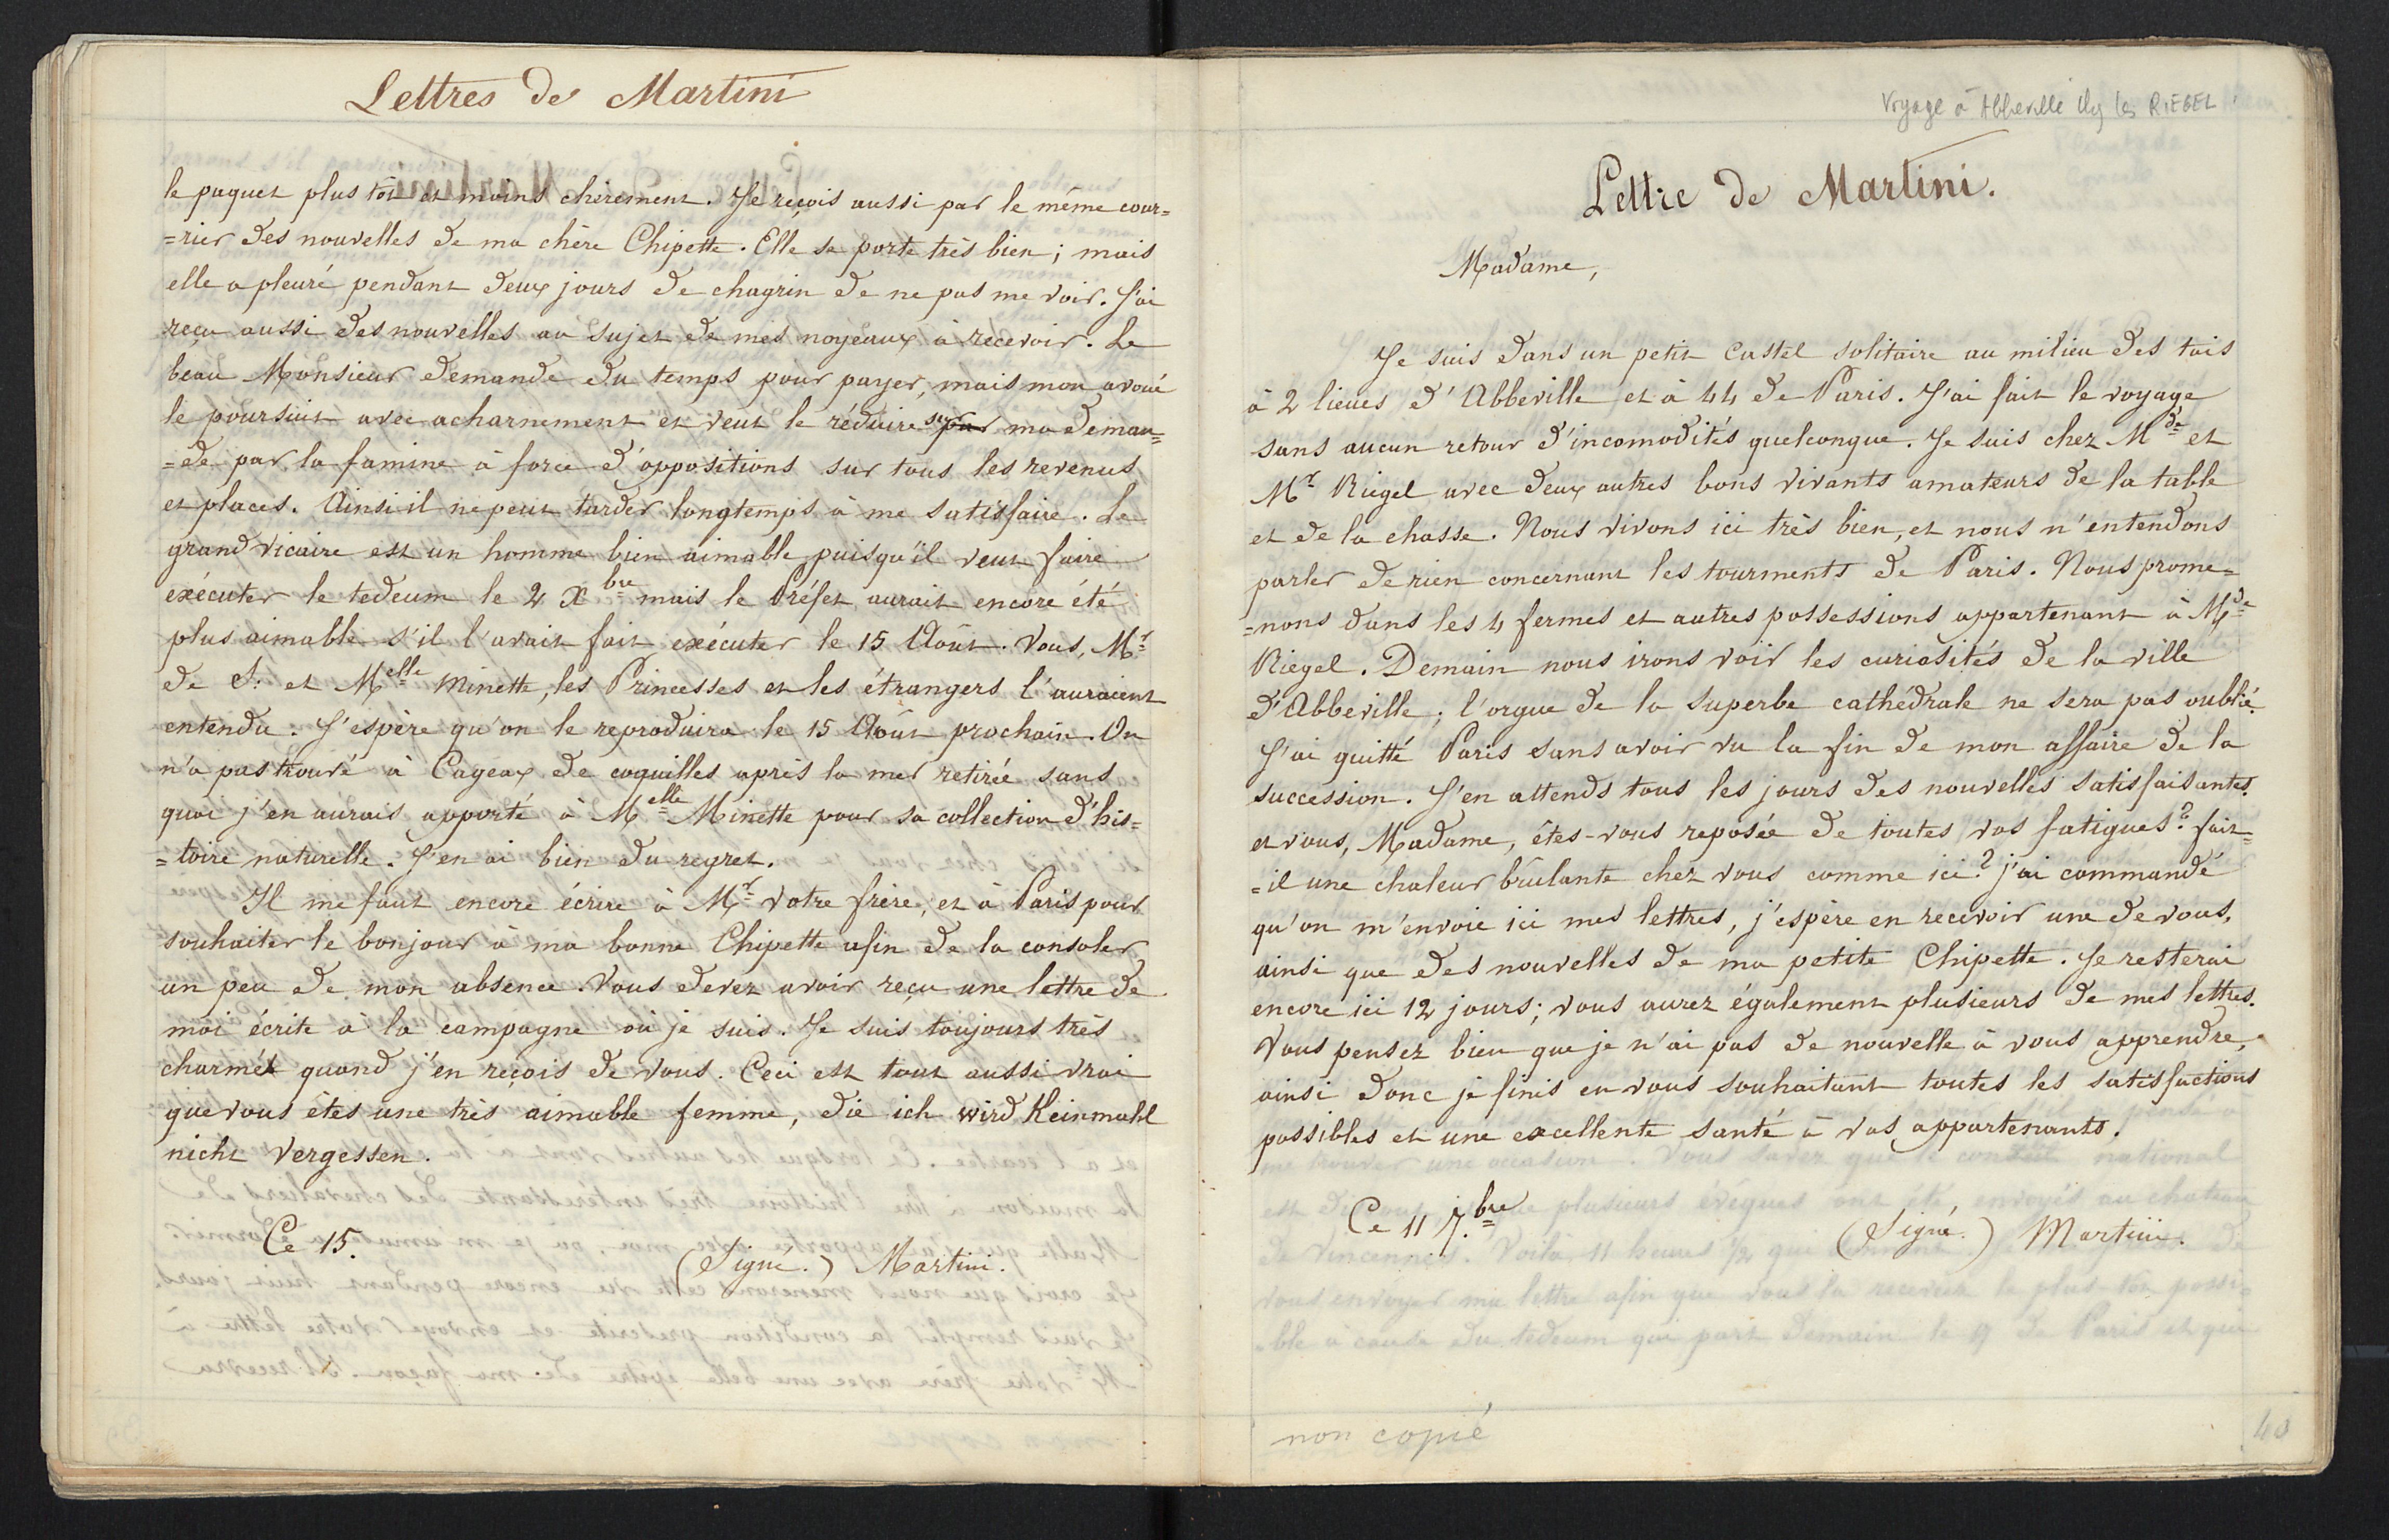 Lettres de Martini
le paquet plus tôt et moins chèrement. Je reçois aussi par le même cour=
=rier des nouvelles de ma chère Chipette. Elle se porte très bien; mais
elle a pleuré pendant deux jours de chagrin de ne pas me voir. J'ai
reçu aussi des nouvelles au sujet de mes noyeaux à recevoir. Le
beau Monsieur demande du temps pour payer, mais mon avoué
le poursuit avec acharnement et veut le réduire sur ma deman=
=de par la famine à force d'oppositions sur tous les revenus
et places. Ainsi il ne peut tarder longtemps à me satisfaire. Le
grand vicaire est un homme bien aimable puisqu'il veut faire
exécuter le tedeum le 2 Xbre mais le Préfet aurait encore été
plus aimable s'il l'avait fait exécuter le 15 Août. Vous, Mr
de S. et Melle Minette, les Princesses et les étrangers l'auraient
entendu. J'espère qu'on le reproduira le 15 Août prochain. On
n'a pas trouvé à Cayeax de coquilles après la mer retirée sans
quoi j'en aurais apporté à Melle Minette pour sa collection d'his=
=toire naturelle. J'en ai bien du regret.
Il me faut encore écrire à Mr votre frère, et à Paris pour
souhaiter le bonjour à ma bonne Chipette afin de la consoler
un peu de mon absence. Vous devez avoir reçu une lettre de
moi écrite à la campagne où je suis. Je suis toujours très
charmé quand j'en reçois de vous. Ceci est tout aussi vrai
que vous êtes une très aimable femme, die ich wird Keinmahl
nicht vergessen.
Ce 15.
(Signé.) Martini.
Voyage à Abbeville chez les RIEGEL
Lettre de Martini.
Madame,
Je suis dans un petit castel solitaire au milieu des tois
à 2 lieues d'Abbeville et à 44 de Paris. J'ai fait le voyage
sans aucun retour d'incomodités quelconque. Je suis chez Mde et
Mr Riegel avec deux autres bons vivants amateurs de la table
et de la chasse. Nous vivons ici très bien, et nous n'entendons
parler de rien concernant les tourments de Paris. Nous prome=
=nons dans les 4 fermes et autres possessions appartenant à Mde
Riegel. Demain nous irons voir les curiosités de la ville
d'Abbeville; l'orgue de la superbe cathédrale ne sera pas oublié.
J'ai quitté Paris sans avoir vu la fin de mon affaire de la
succession. J'en attends tous les jours des nouvelles satisfaisantes.
et vous, Madame, êtes-vous reposée de toutes vos fatigues? fait=
=il une chaleur brûlante chez vous comme ici? j'ai commandé
qu'on m'envoie ici mes lettres, j'espère en recevoir une de vous,
ainsi que des nouvelles de ma petite Chipette. Je resterai
encore ici 12 jours; vous aurez également plusieurs de mes lettres.
Vous pensez bien que je n'ai pas de nouvelle à vous apprendre,
ainsi donc je finis en vous souhaitant toutes les satisfactions
possibles et une excellente santé à vos appartenants.
Ce 11 7.bre
(Signé.) Martini.
non copié
40